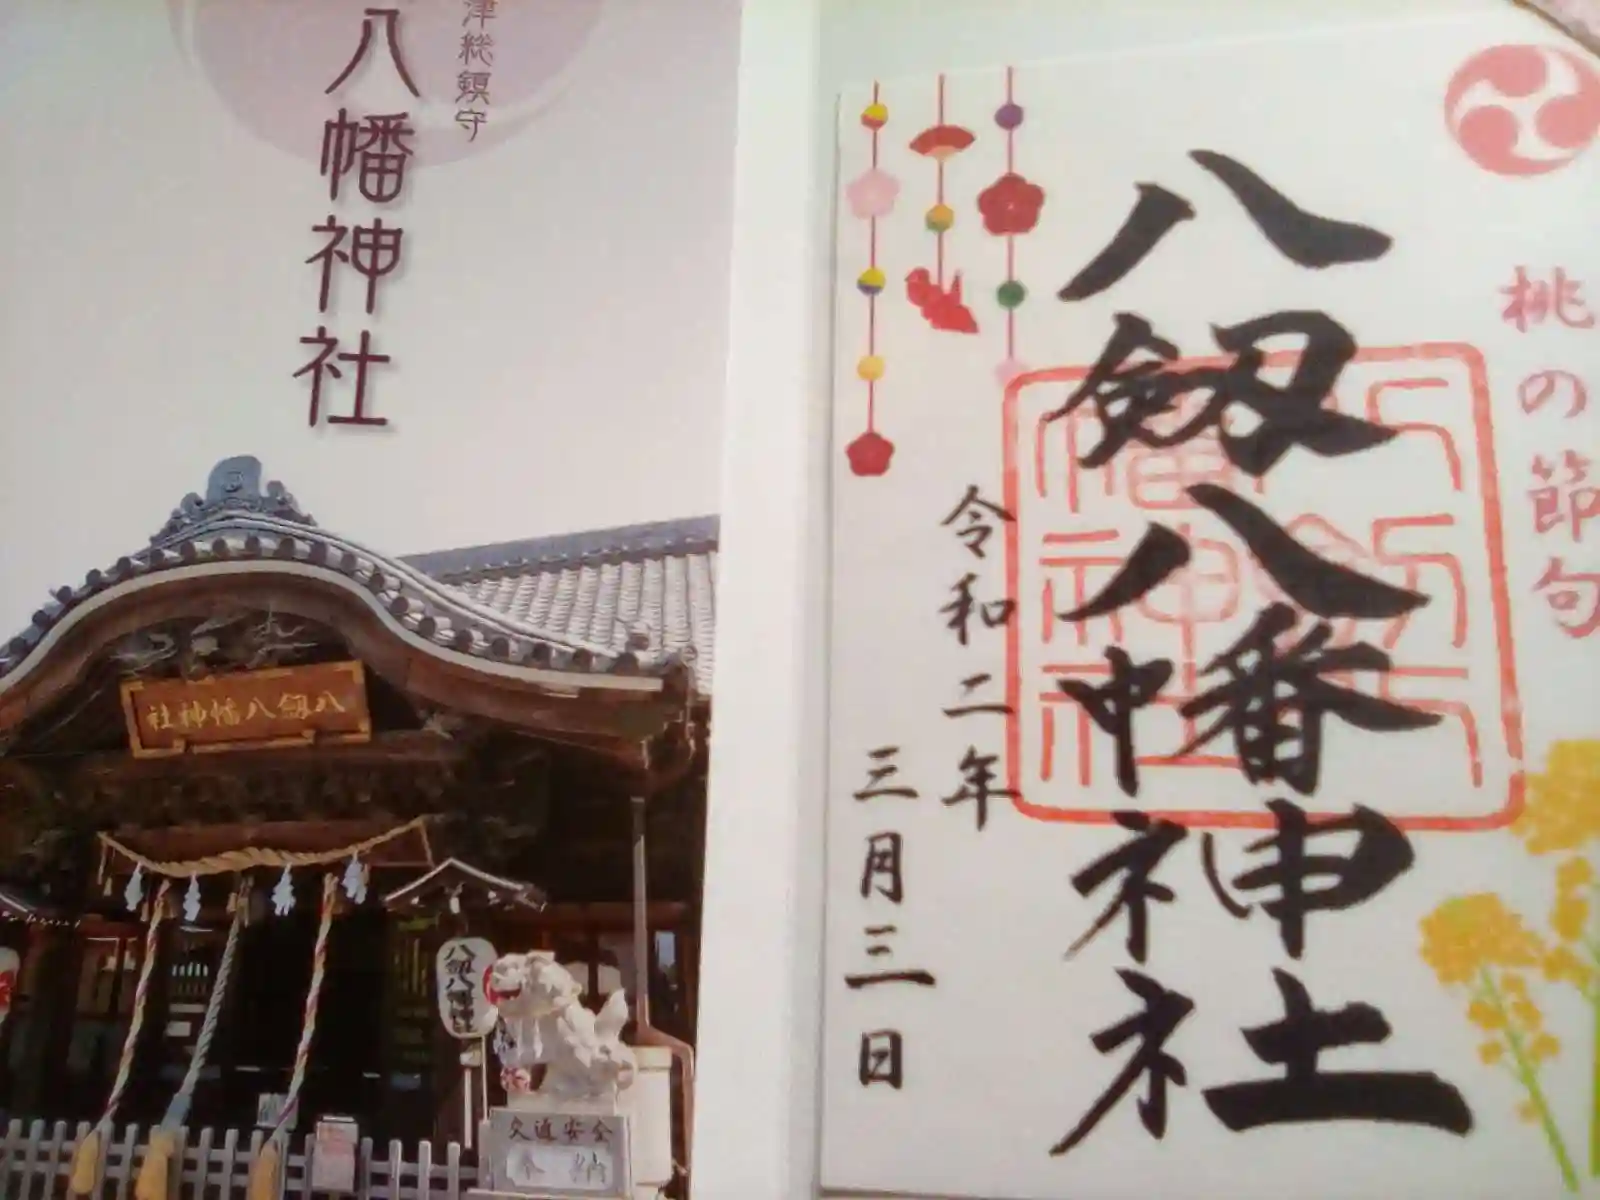 津総鎮守
八幡神社
八剱八幡神社
八剱八幡神社
交通安全
奉納
桃の節句
八剱八幡神社
令和二年
三月三日